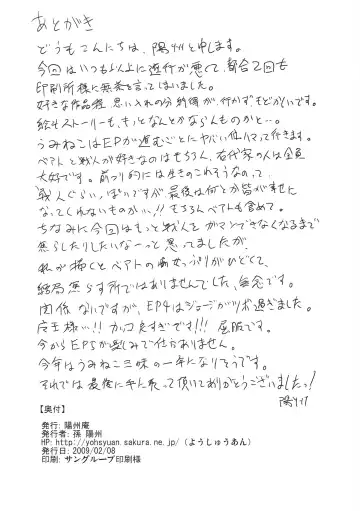 あとがき
どうもこんにちは、陽州と申します。
今回はいつも以上に進行が悪くて、都合2回も
印刷所様に無茶を言ってしまいました。
好きな作品程、思い入れの分納得が行かずもどかしいです。
絵もストーリーも、きっとなんとかならんものかと…。
うみねこはEPが進むごとにヤバい位ハマって行きます。
ベアトと戦人が好きなのはもちろん、右代宮の人は全員
大好きです。前つ的には生きのこれそうなのって、
戦人ぐらいっぽいですが、最後は何とか皆が幸せに
なってくれないものかい!! もちろんベアトも含めて。
ちなみに今回はもっと戦人をガマンできなくなるまで
焦らしたりしたいなーっと思ってましたが、
私が描くとベアトの
結局焦らす所ではありませんでした、無念です。
関係ないですが、EP4はジョージがツボ過ぎました。
在王様…!! カッコ良すぎです!!! 屈服です。
今からEP5が楽しみで仕方ありません。
今年はうみねこ三昧の一年になりそうです。
それでは最後に手に取って頂いてありがとうございましたっ!
陽州
【奥付】
発行: 陽州庵
発行者: 孫 陽州
HP: http://yohsyuan.sakura.ne.jp/ (ようしゅうあん)
発行日: 2009/02/08
印刷: サングループ印刷様